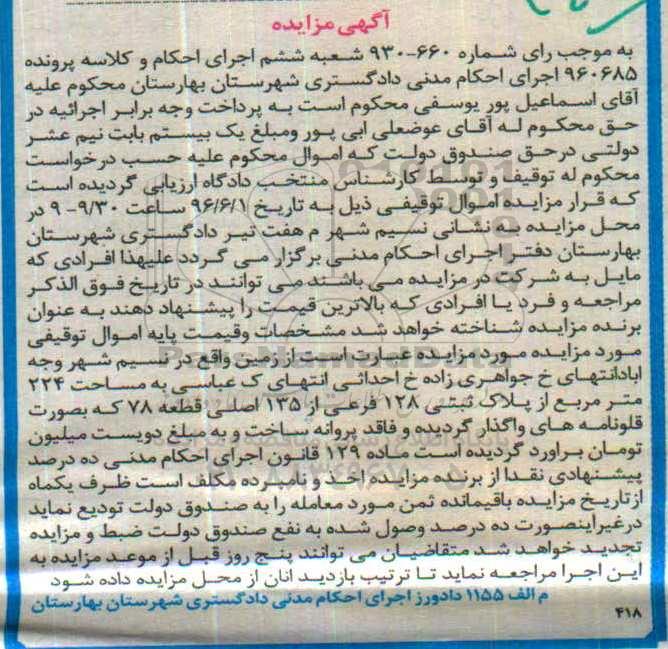 آگهی مزایده
به موجب رای شماره ۶۶۰-۹۳۰ شعبه ششم اجرای احکام و کلاسه پرونده
۹۶۰۶۸۵ اجرای احکام مدنی دادگستری شهرستان بهارستان محکوم علیه
آقای اسماعیل پور یوسفی محکوم است به پرداخت وجه برابر اجرائیه در
حق محکوم له آقای عوضعلی ابی پور ومبلغ یک بیستم بابت نیم عشر
دولتی درحق صندوق دولت که اموال محکوم علیه حسب درخواست
محکوم له توقیف و توسط کارشناس منتخب دادگاه ارزیابی گردیده است
که قرار مزایده اموال توقیفی ذیل به تاریخ ۹۶/۶/۱ ساعت ۹/۳۰-۹ در
محل مزایده به نشانی نسیم شهر م هفت تیر دادگستری شهرستان
بهارستان دفتر اجرای احکام مدنی برگزار می گردد علیهذا افرادی که
مایل به شرکت در مزایده می باشند می توانند در تاریخ فوق الذکر
مراجعه و فرد یا افرادی که بالاترین قیمت را پیشنهاد دهند به عنوان
برنده مزایده شناخته خواهد شد مشخصات وقیمت پایه اموال توقیفی
مورد مزایده مورد مزایده عبارت است از زمین واقع در نسیم شهر وجه
ابادانتهای خ جواهری زاده خ احداثی انتهای ک عباسی به مساحت ۲۲۴
متر مربع از پلاک ثبتی ۱۲۸ فرعی از ۱۳۵ اصلی قطعه ۷۸ که بصورت
قلونامه های واگذار گردیده و فاقد پروانه ساخت و به مبلغ دویست میلیون
تومان براورد گردیده است ماده ۱۲۹ قانون اجرای احکام مدنی ده درصد
پیشنهادی نقدا از برنده مزایده اخذ و نامبرده مکلف است ظرف یکماه
از تاریخ مزایده باقیمانده ثمن مورد معامله را به صندوق دولت تودیع نماید
درغیراینصورت ده درصد وصول شده به نفع صندوق دولت ضبط و مزایده
تجدید خواهد شد متقاضیان می توانند پنج روز قبل از موعد مزایده به
این اجرا مراجعه نماید تا ترتیب بازدید انان از محل مزایده داده شود
م الف ۱۱۵۵ دادورز اجرای احکام مدنی دادگستری شهرستان بهارستان
۴۱۸